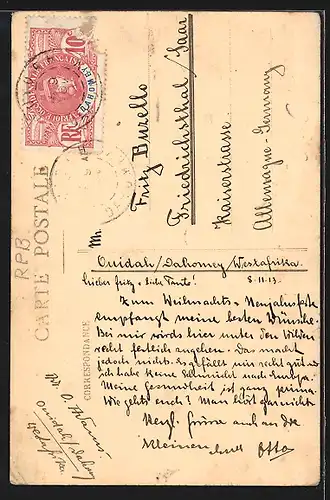 CARTE POSTALE
CORRESPONDANCE
RPB
10
DAHOMEY
Mr.
Fritz
Friedrichsthal/Saar
Kaiserstrasse
Allemagne-Germany
Ouidah/Dahomey/Westafrika
8-11-13
Lieber Fritz + liebe Tante!
Zum Weihnachts + Neujahrsfeste
empfangt meine besten Wünsche.
Bei mir wirds hier unter den Wilden
recht festlich angehen. Das macht
jedoch nichts. Es gefällt mir recht gut
ich habe keine Sehnsucht nach Europa.
Meine Gesundheit ist ganz prima.
Wie gehts euch? Man hört gar nichts
Herzl. Grüsse auch an die
Kleinen Otto
O.
Ouidah/Dahomey
Westafrika